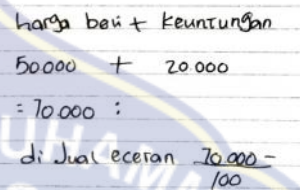 harga beli + keuntungan
50000 + 20.000
= 70.000 :
di Jual eceran 70.000 -
100
UHAMA